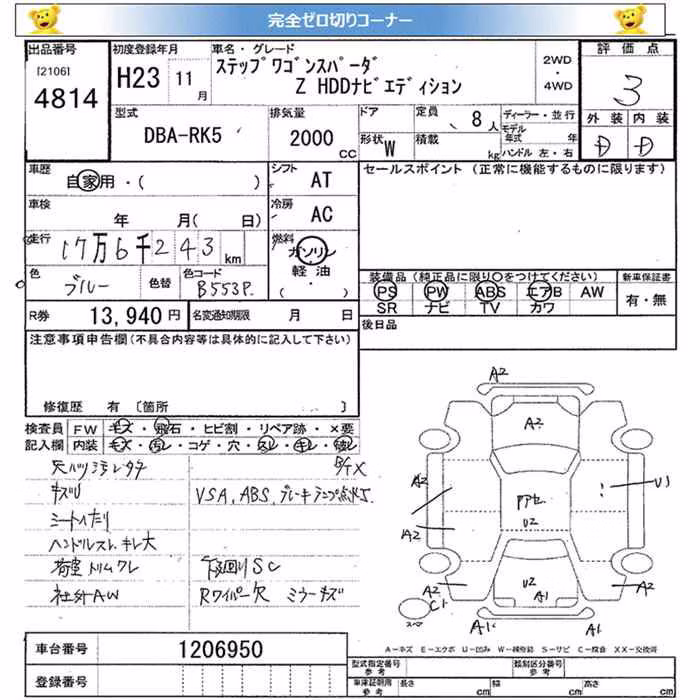 完全ゼロ切りコーナー
出品番号
[2106]
4814
初度登録年月
H23 11月
車名・グレード
ステップワゴンスパーダ
Z HDDナビエディション
2WD
・
4WD
評価点
3
外装 内装
D D
型式
DBA-RK5
排気量
2000 CC
ドア
形状 W
定員 8人
積載 kg
ディーラー・並行
モデル年式 年
ハンドル 左・右
車歴
自家用・( )
シフト
AT
セールスポイント (正常に機能するものに限ります)
車検
年 月( 日)
冷房
AC
走行
17万6千243km
燃料
ガソリン
軽油
( ・ )
色
ブルー
色替
色コード
B553P
装備品 (純正品に限り○をつけてください)
新車保証書
PS PW ABS エアB AW
有・無
SR ナビ TV カワ
R券 13,940円
名変通知期限 月 日
後日品
注意事項申告欄(不具合内容等は具体的に記入して下さい)
修復歴 有 〔箇所 〕
検査員
記入欄
FW キズ・飛石・ヒビ割・リペア跡・×要
内装 キズ・汚レ・コゲ・穴・スレ・キレ・破レ
キズU
VSA、ABS、ブレーキランプ点灯
シートヘたり
ハンドルスレ、キレ大
荷室トリムワレ
下廻りSC
社外AW
Rワイパー欠 ミラーキズ
A2
A2
A2
A2
U2
U2
A1
U3
A2
A2
C1
スペ
A1
A1
A-キズ E-エクボ U-凹み W-補修跡 S-サビ C-腐食 XX-交換済
車台番号 1206950
登録番号
型式指定番号
参考
類別区分番号
参考
車庫証明用
参考
長さ cm 幅 cm 高さ cm